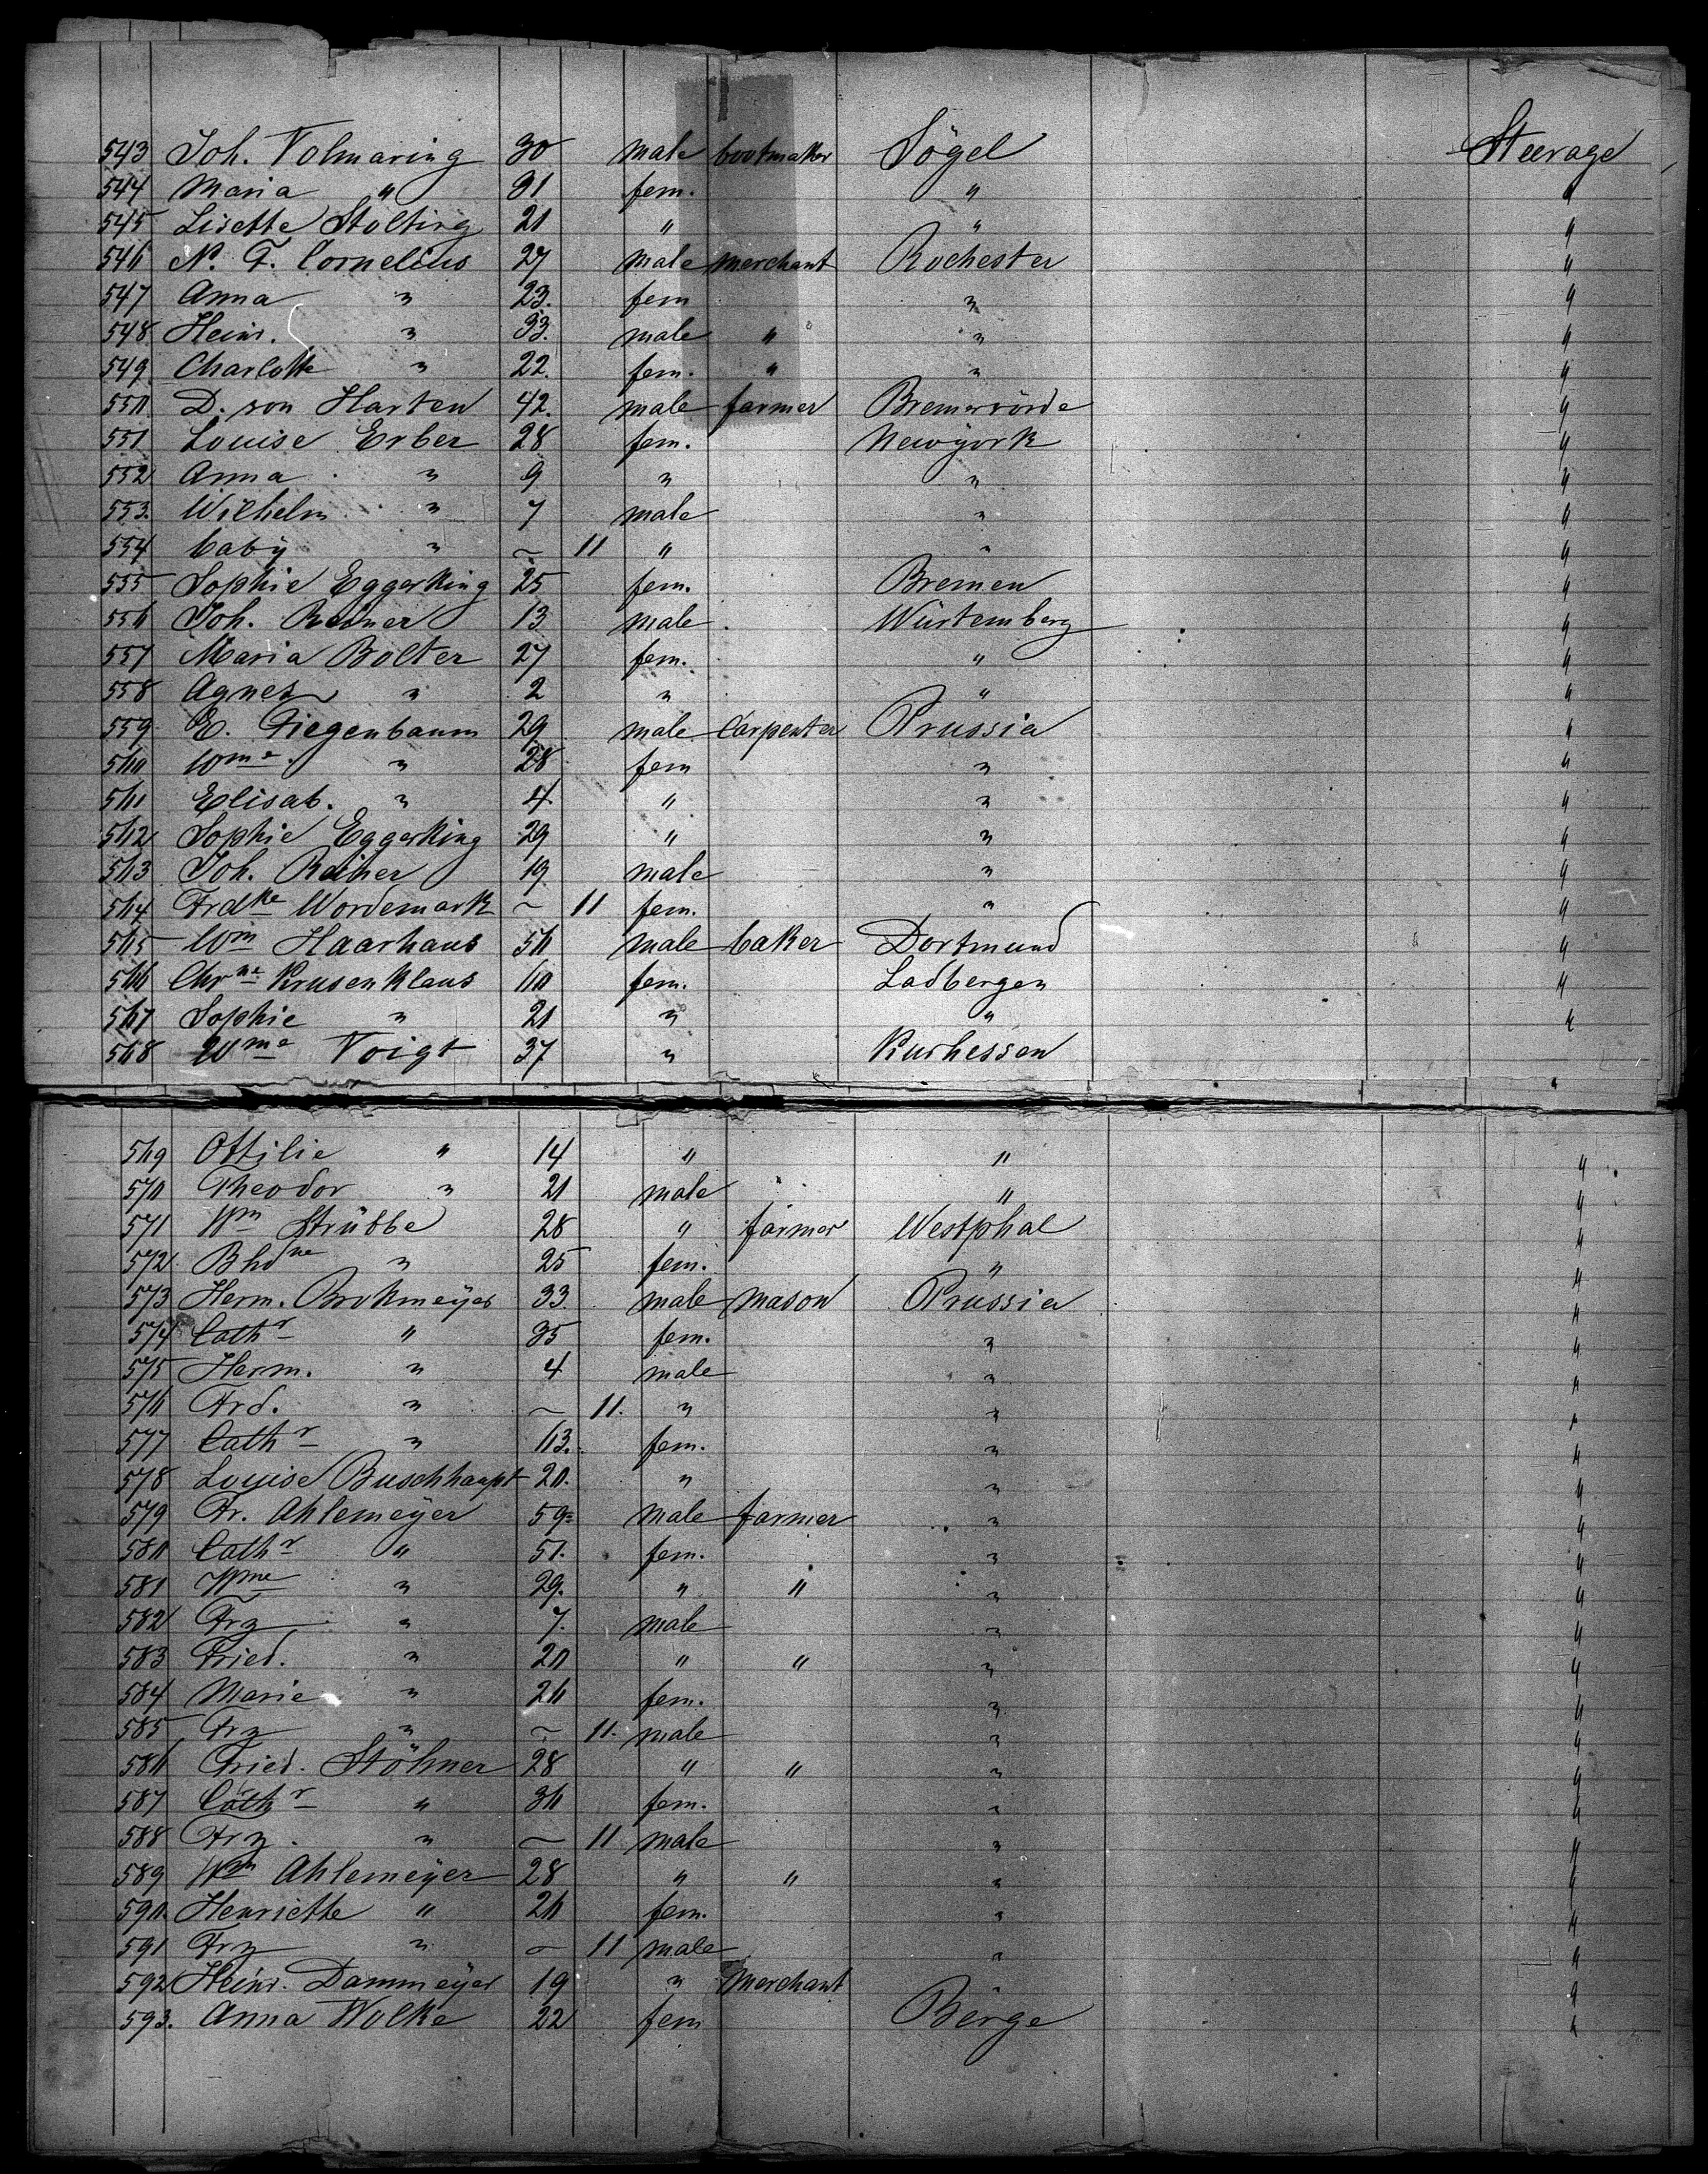 543 Joh. Volmaring 30 male bootmaker Sögel Steerage
544 Maria " 31 fem. " "
545 Lisette Stolting 21 " " "
546 N. F. Cornelius 27 male merchant Rochester "
547 Anna " 23. fem " "
548 Heinr. " 33. male " " "
549. Charlotte " 22. fem. " " "
550. D. von Harten 42. male farmer Bremervörde "
551 Louise Erber 28 fem. Newyork "
552 Anna " 9 " " "
553. Wilhelm " 7 male " "
554 baby " ~ 11 " " "
555 Sophie Eggerking 25 fem. Bremen "
556 Joh. Reiner 13 male Würtemberg "
557 Maria Bolter 27 fem. " "
558 Agnes " 2 " " "
559. E. Fiegenbaum 29 male Carpenter Prussia "
560 Wme. " 28 fem " "
561 Elisab. " 4 " " "
562 Sophie Eggerking 29 " " "
563 Joh. Reiner 19 male " "
564 Frdke Wordemark ~ 11 fem. " "
565 Wm Haarhaus 56 male baker Dortmund "
566 Chrne Krusenklaus 60 fem. Ladbergen "
567 Sophie " 21 " " "
568 Wme Voigt 37 " Kurhessen "
569 Ottilie " 14 " " "
570 Theodor " 21 male " "
571 Wm Strübbe 28 " farmer Westphal "
572. Bhdne " 25 fem. " "
573 Herm. Brokmeyer 33. male mason Prussia "
574 Cathr " 35 fem. " "
575 Herm. " 4 male " "
576 Frd. " ~ 11. " " "
577 Cathr " 63. fem. " "
578 Louise Buschhaupt 20. " " "
579 Fr. Ahlemeyer 59 male farmer " "
580 Cathr " 51. fem. " "
581 Wme " 29. " " " "
582 Frz " 7. male " "
583 Fried. " 20 " " " "
584 Marie " 26 fem. " "
585 Frz " ~ 11. male " "
586 Fried. Stöhner 28 " " " "
587 Cathr " 36 fem. " "
588 Frz. " ~ 11 male " "
589 Wm Ahlemeyer 28 " " " "
590. Henriette " 26 fem. " "
591 Frz " ~ 11 male " "
592 Heinr. Dammeyer 19 " merchant " "
593. Anna Wolke 22 fem Berge "